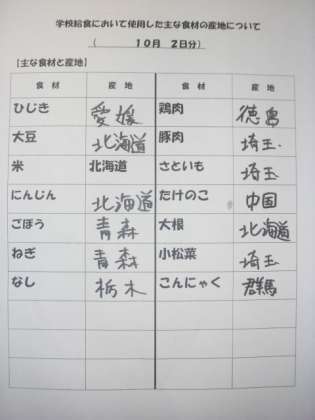 学校給食において使用した主な食材の産地について
(　10月　2日分)
【主な食材と産地】
食材 産地 食材 産地
ひじき 愛媛 鶏肉 徳島
大豆 北海道 豚肉 埼玉
米 北海道 さといも 埼玉
にんじん 北海道 たけのこ 中国
ごぼう 青森 大根 北海道
ねぎ 青森 小松菜 埼玉
なし 栃木 こんにゃく 群馬